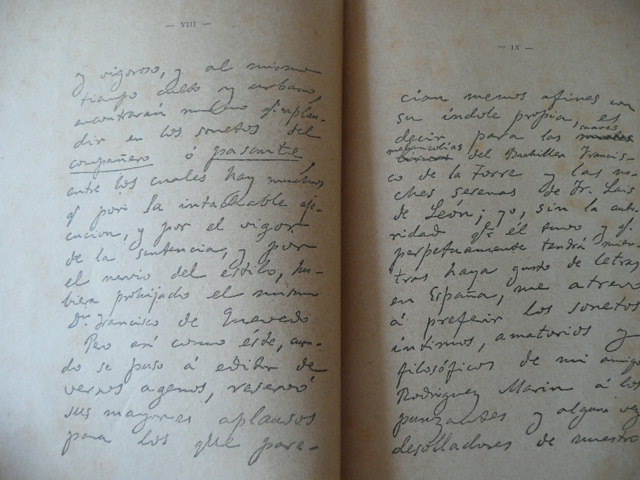 — VIII —
y vigoroso, y al mismo
tiempo culto y urbano,
encontrarán mucho q. aplau-
dir en los sonetos del
compañero ó pasante,
entre los cuales hay muchos
q. por la intachable eje-
cución, y por el vigor
de la sentencia, y por
el nervio del estilo, hu-
biera prohijado el mismo
Dn. Francisco de Quevedo
Pero así como éste, cuan-
do se puso á editor de
versos agenos, reservó
sus mayores aplausos
para los que pare-
— IX —
cían menos afines con
su índole propia, es
decir para las suaves
melancolías del Bachiller Francis-
co de la Torre y las no-
ches serenas de Fr. Luis
de León; yo, sin la auto-
ridad qe. él tuvo y q.
perpetuamente tendrá mien-
tras haya gusto de letras
en España, me atrevo
á preferir los sonetos
íntimos, amatorios y
filosóficos de mi amigo
Rodriguez Marin á los
punzantes y alguna vez
desolladores de nuestro